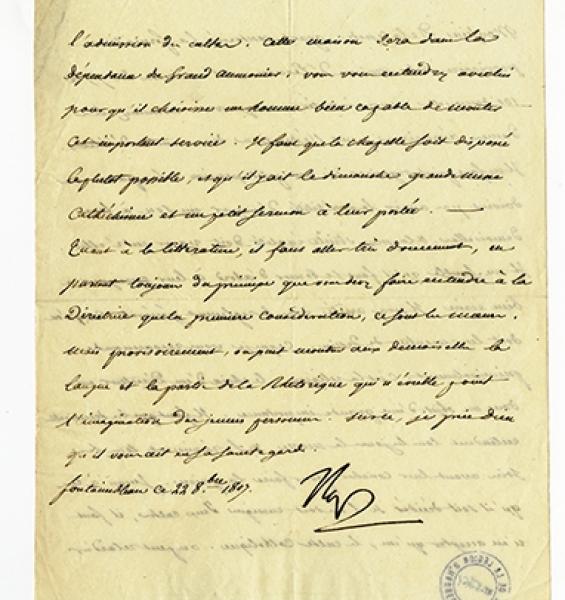 l'admission du culte. Cette maison sera dans la
dépendance du Grand aumonier. vous vous entendrez avec lui
pour qu'il choisisse un homme bien capable de monter
cet important service. Il faut que la chapelle soit disposée
le plutot possible, et qu'il y ait le dimanche grande messe
Cathéchisme et un petit sermon à leur portée. —
Quant à la littérature, il faut aller très doucement, en
partant toujours du principe que vous devez faire entendre à la
Directrice que la première considération, ce sont les mœurs.
mais provisoirement, on peut montrer aux demoiselles la
langue et la partie de la Rhétorique qui n'éveille point
l'imagination des jeunes personnes. Sur ce, je prie Dieu
qu'il vous ait en sa sainte garde.
fontainebleau ce 22 8.bre 1807.
Nap